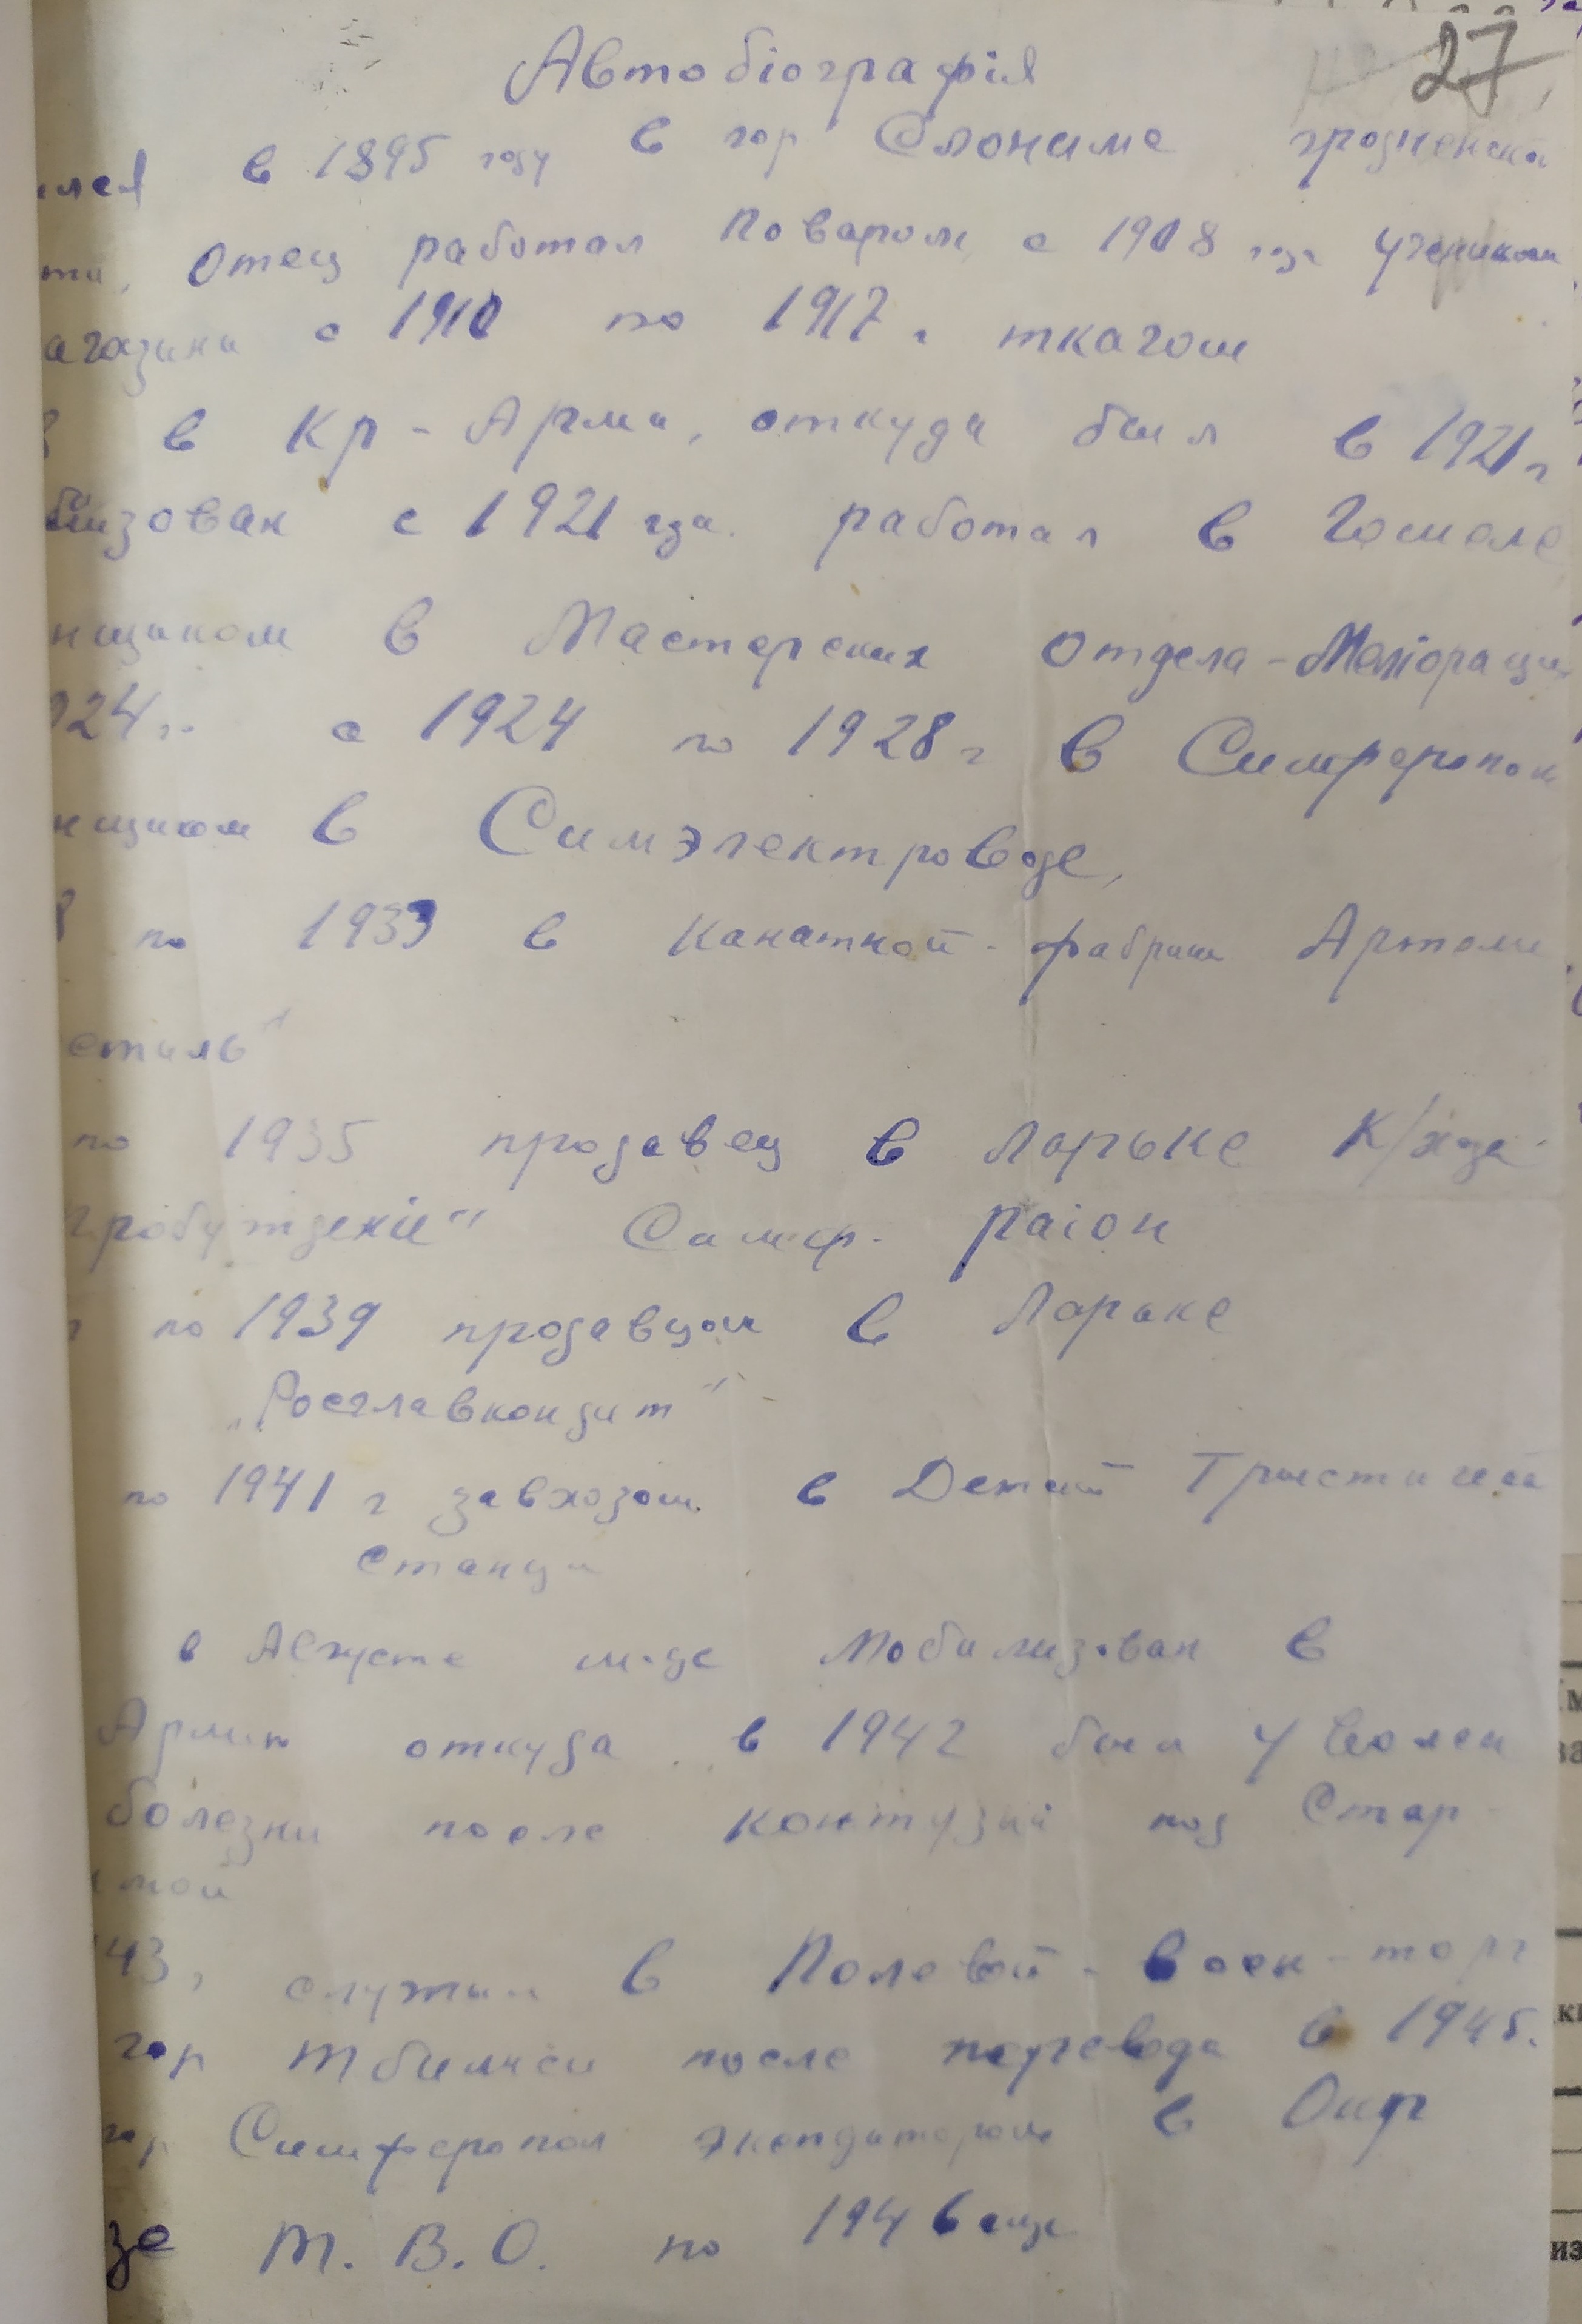 27
Автобіографія
лся в 1895 году в гор Слониме гродненской
ти, Отец работал Поваром, с 1908 года Учеником
агазини с 1910 по 1917 г ткачом
в Кр-Арми, откуда был в 1921 г
билизован с 1921 года. работал в Гомеле
нщиком в Мастерских Отдела-Меліораци
924 г. с 1924 по 1928 г в Симферопол
нщиком в Симэлектроводе,
8 по 1933 в Канатной-фабрики Артели
стиль"
по 1935 продавец в Ларьке К/хоза
Пробужденіе" Симф. раіон
по 1939 продавцом в Ларьке
„Росглавкондит"
по 1941 г завхозом в Детскй Трыстичей
Станци
в Августе м-це Мобилизован в
Армию откуда в 1942 был Уволен
болезни после контузиі под Стар
мой
43, служил в Полевой-Воен-торг
гор Тбилиси после перевода в 1945.
гор Симферопол экспдитором в Окр
зе Т. В. О. по 1946